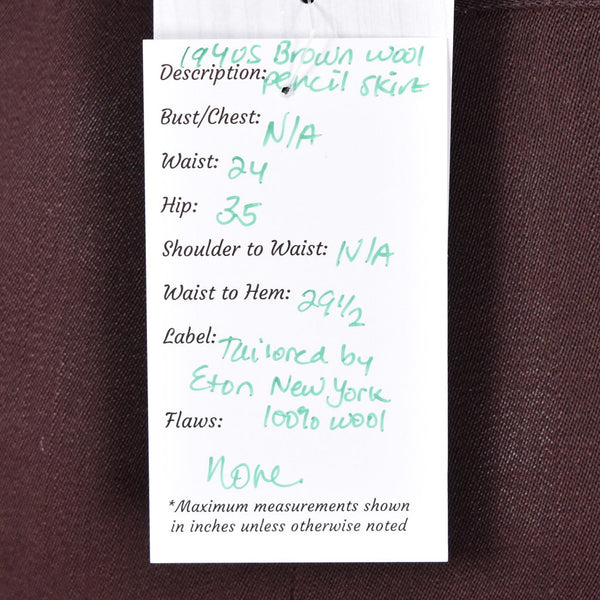 1940s Brown wool
Description: pencil skirt
Bust/Chest: N/A
Waist: 24
Hip: 35
Shoulder to Waist: N/A
Waist to Hem: 29 1/2
Label: Tailored by
Eton New York
Flaws: 100% wool
None.
*Maximum measurements shown
in inches unless otherwise noted